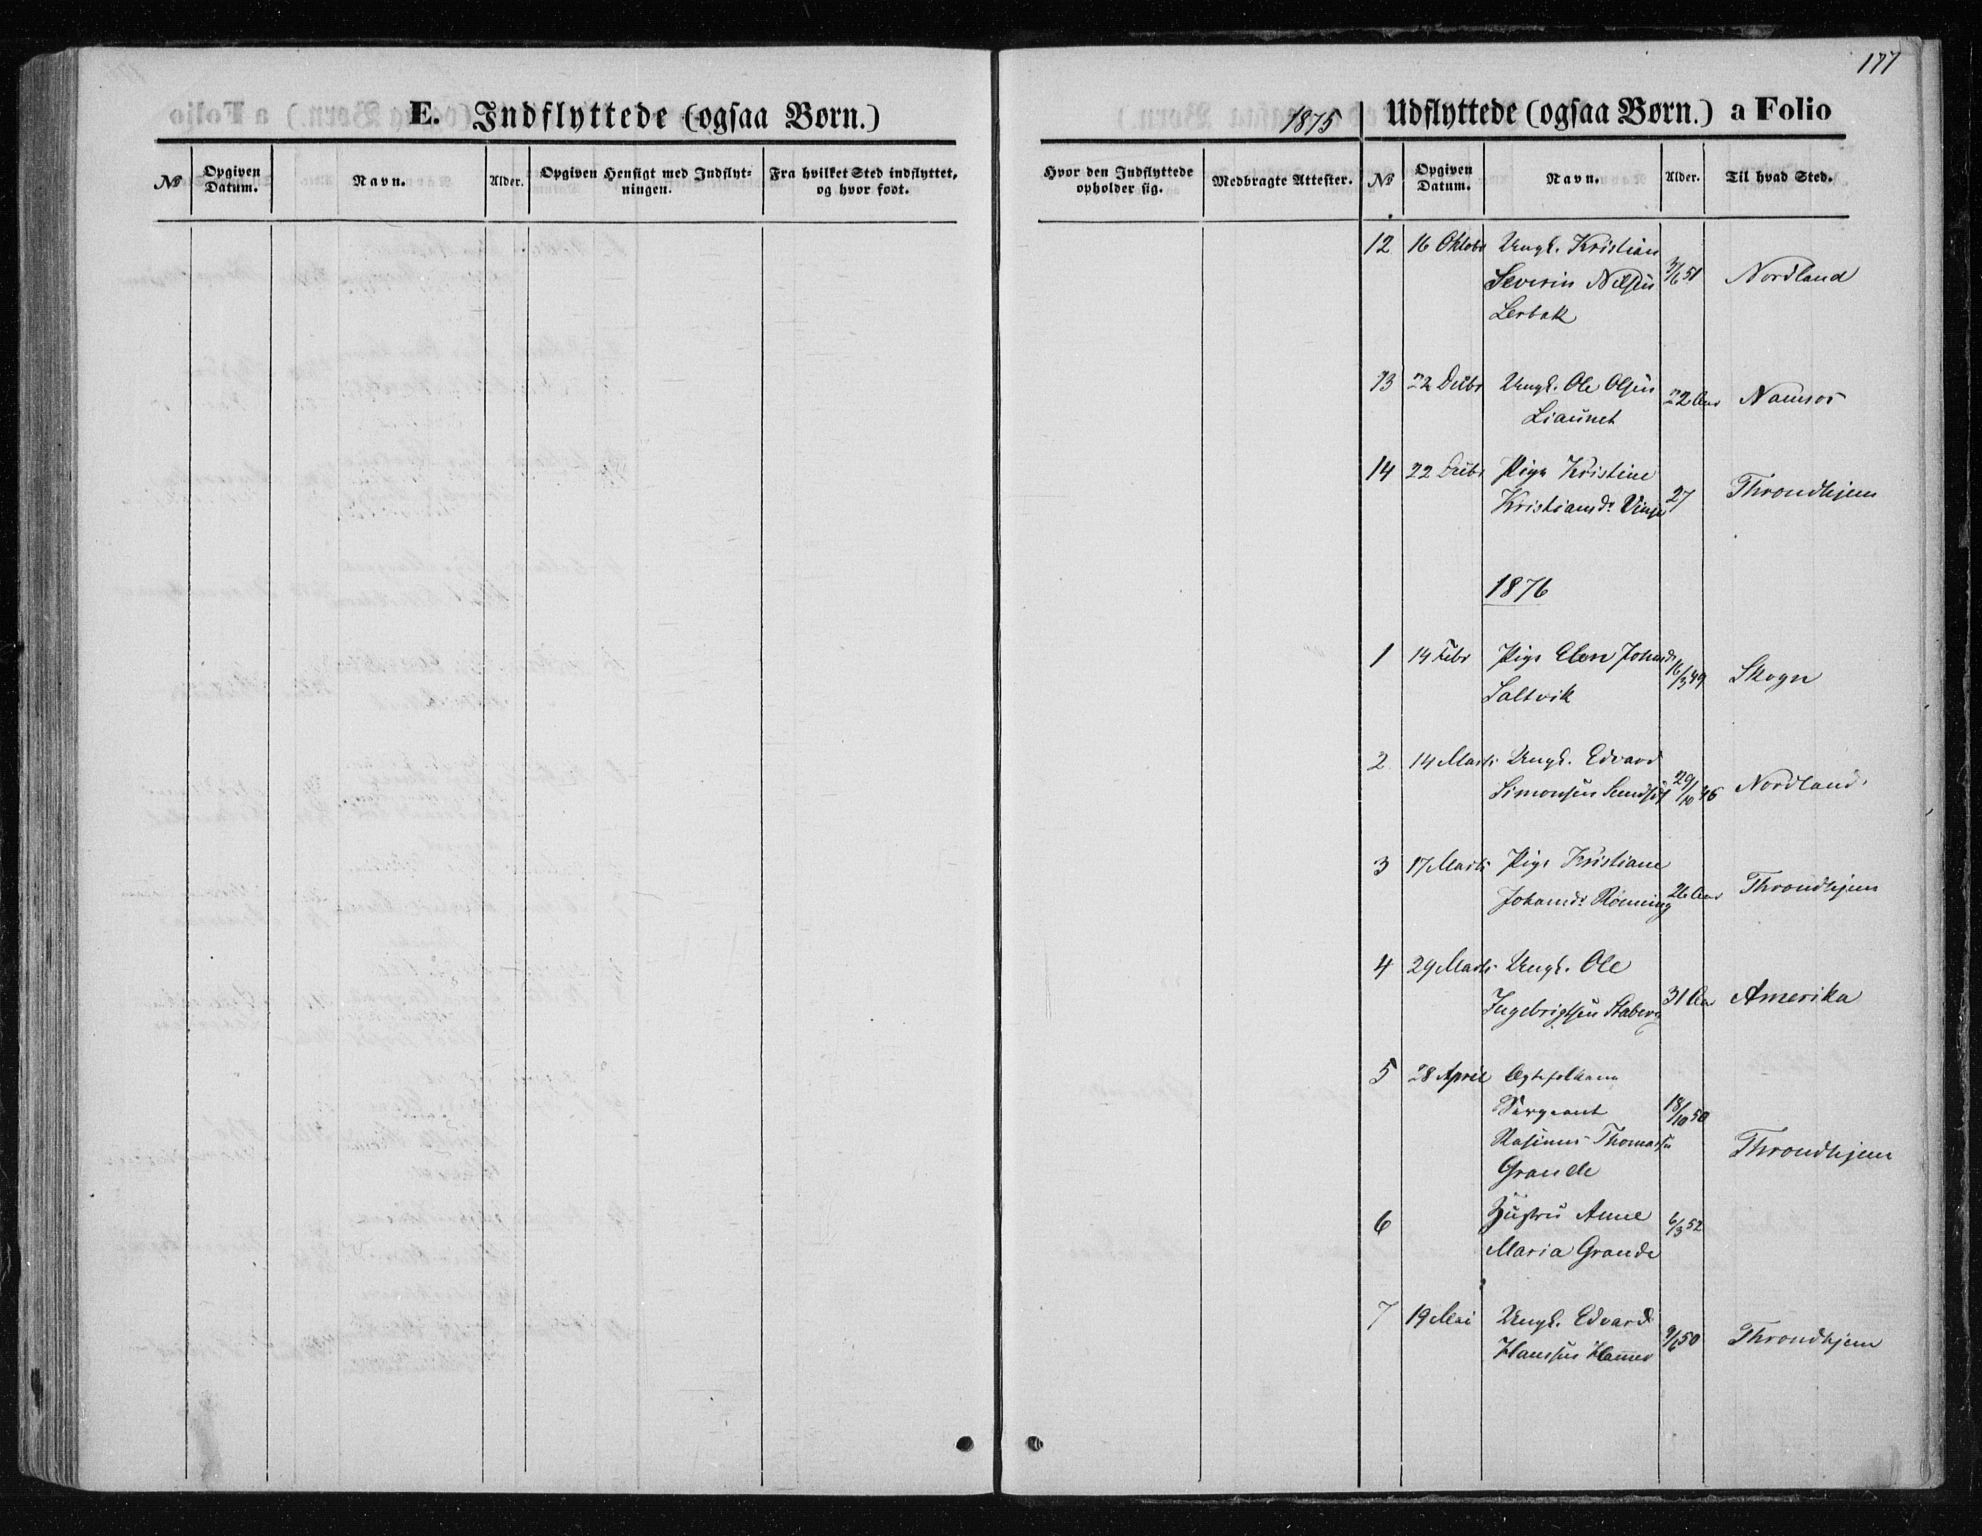 177
E. Indflyttede (ogsaa Børn.)
1875
Udflyttede (ogsaa Børn.) a Folio
No
Opgiven Datum.
Navn.
Alder.
Opgiven Hensigt med Indflyt=
ningen.
Fra hvilket Sted indflyttet,
og hvor født.
Hvor den Indflyttede
opholder sig.
Medbragte Attester.
No
Opgiven Datum.
Navn.
Alder.
Til hvad Sted.
12 16 Oktobr Ungk. Kristian
Severin Nilsen 51 Nordland
Lerbak
13 22 Decbr Ungk. Ole Olsen
22 Aar Namsos
Liaunet
14 22 Decbr Pige Kristine
Kristiansdr Vinje 27 Throndhjem
1876
1 14 Febr Pige Elen Johansdr
16/3 49 Skogn
Saltvik
2 14 Marts Ungk. Edvard
Simonsen 29/10 46 Nordland
3 17 Marts Pige Kristiane
Johansdr Rønning 26 Aar Throndhjem
4 29 Marts Ungk. Ole
Ingebrigtsen Staberg 31 Aar Amerika
5 28 April Ægtefolkene
Sergeant 18/10 50
Rasmus Thomassen Throndhjem
Grande
6 Hustru Anne 6/3 52
Maria Grande
7 19 Mai Ungk. Edvard
Hanssen Hammer 9/6 50 Throndhjem